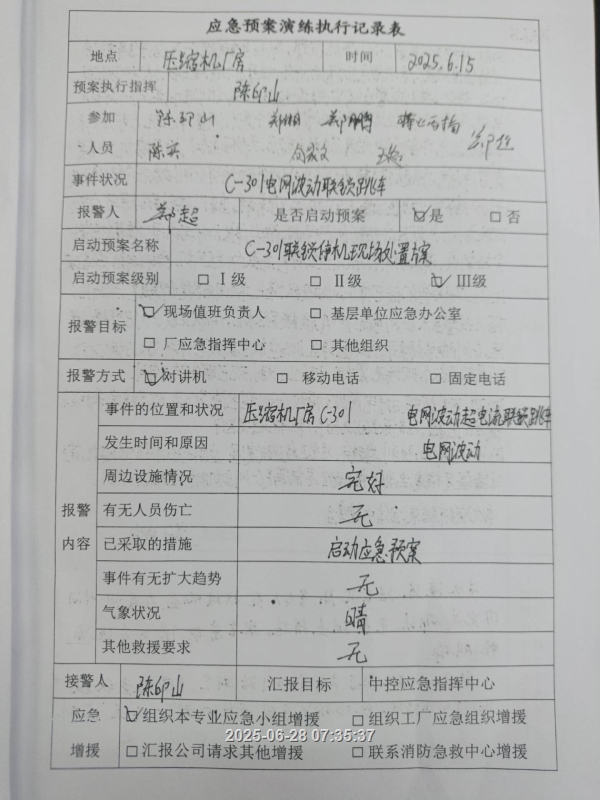 应急预案演练执行记录表
地点 压缩机厂房 时间 2025.6.15
预案执行指挥 陈印山
参加 陈印山 郑鹏
人员 陈英
事件状况 C-301电网波动联锁跳车
报警人 郑超 是否启动预案 ☑是 □否
启动预案名称 C-301联锁停机现场处置方案
启动预案级别 □Ⅰ级 □Ⅱ级 ☑Ⅲ级
报警目标 ☑现场值班负责人 □基层单位应急办公室
□厂应急指挥中心 □其他组织
报警方式 ☑对讲机 □移动电话 □固定电话
报警内容
事件的位置和状况 压缩机厂房C-301 电网波动超电流联锁跳车
发生时间和原因 电网波动
周边设施情况 完好
有无人员伤亡 无
已采取的措施 启动应急预案
事件有无扩大趋势 无
气象状况 晴
其他救援要求 无
接警人 陈印山 汇报目标 中控应急指挥中心
应急 ☑组织本专业应急小组增援 □组织工厂应急组织增援
2025-06-28 07:35:37
增援 □汇报公司请求其他增援 □联系消防急救中心增援